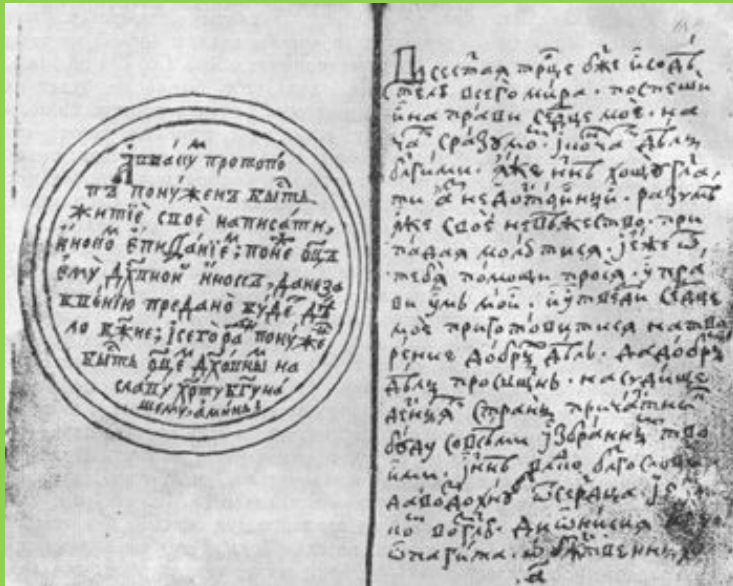 Аввакум протопо
пъ понужен бысть
житие свое написати,
иноком Епифанием; понеж отецъ
ему духовной инокъ, да не за
бвению предано будет дѣ
ло божие; и сего ради понужен
бысть отцем духовным на
славу Христу Богу на
шему, аминь!
Всесвятая троице боже и содѣ
тель всего мира. поспеши
и направи сердце мое. на
чати с разумом. и кончати дѣлы
благими. яже ныне хощу глаголати
аз недостойный. разумѣ
я же свое невѣжество. при
падая молю ти ся. и еже от
тебя помощи прося. управи
умъ мой. и утверди сердце
мое приготовитися на тво
рение добрых дѣлъ. да добрыми
дѣлы просвѣщенъ. на судище
десныя страны причастник
буду со всѣми избранными тво
ими. и ныне владыко благослови
да воздохнув от сердца и
языком возглаголю. Дионисия
Ареопагита. о божественных